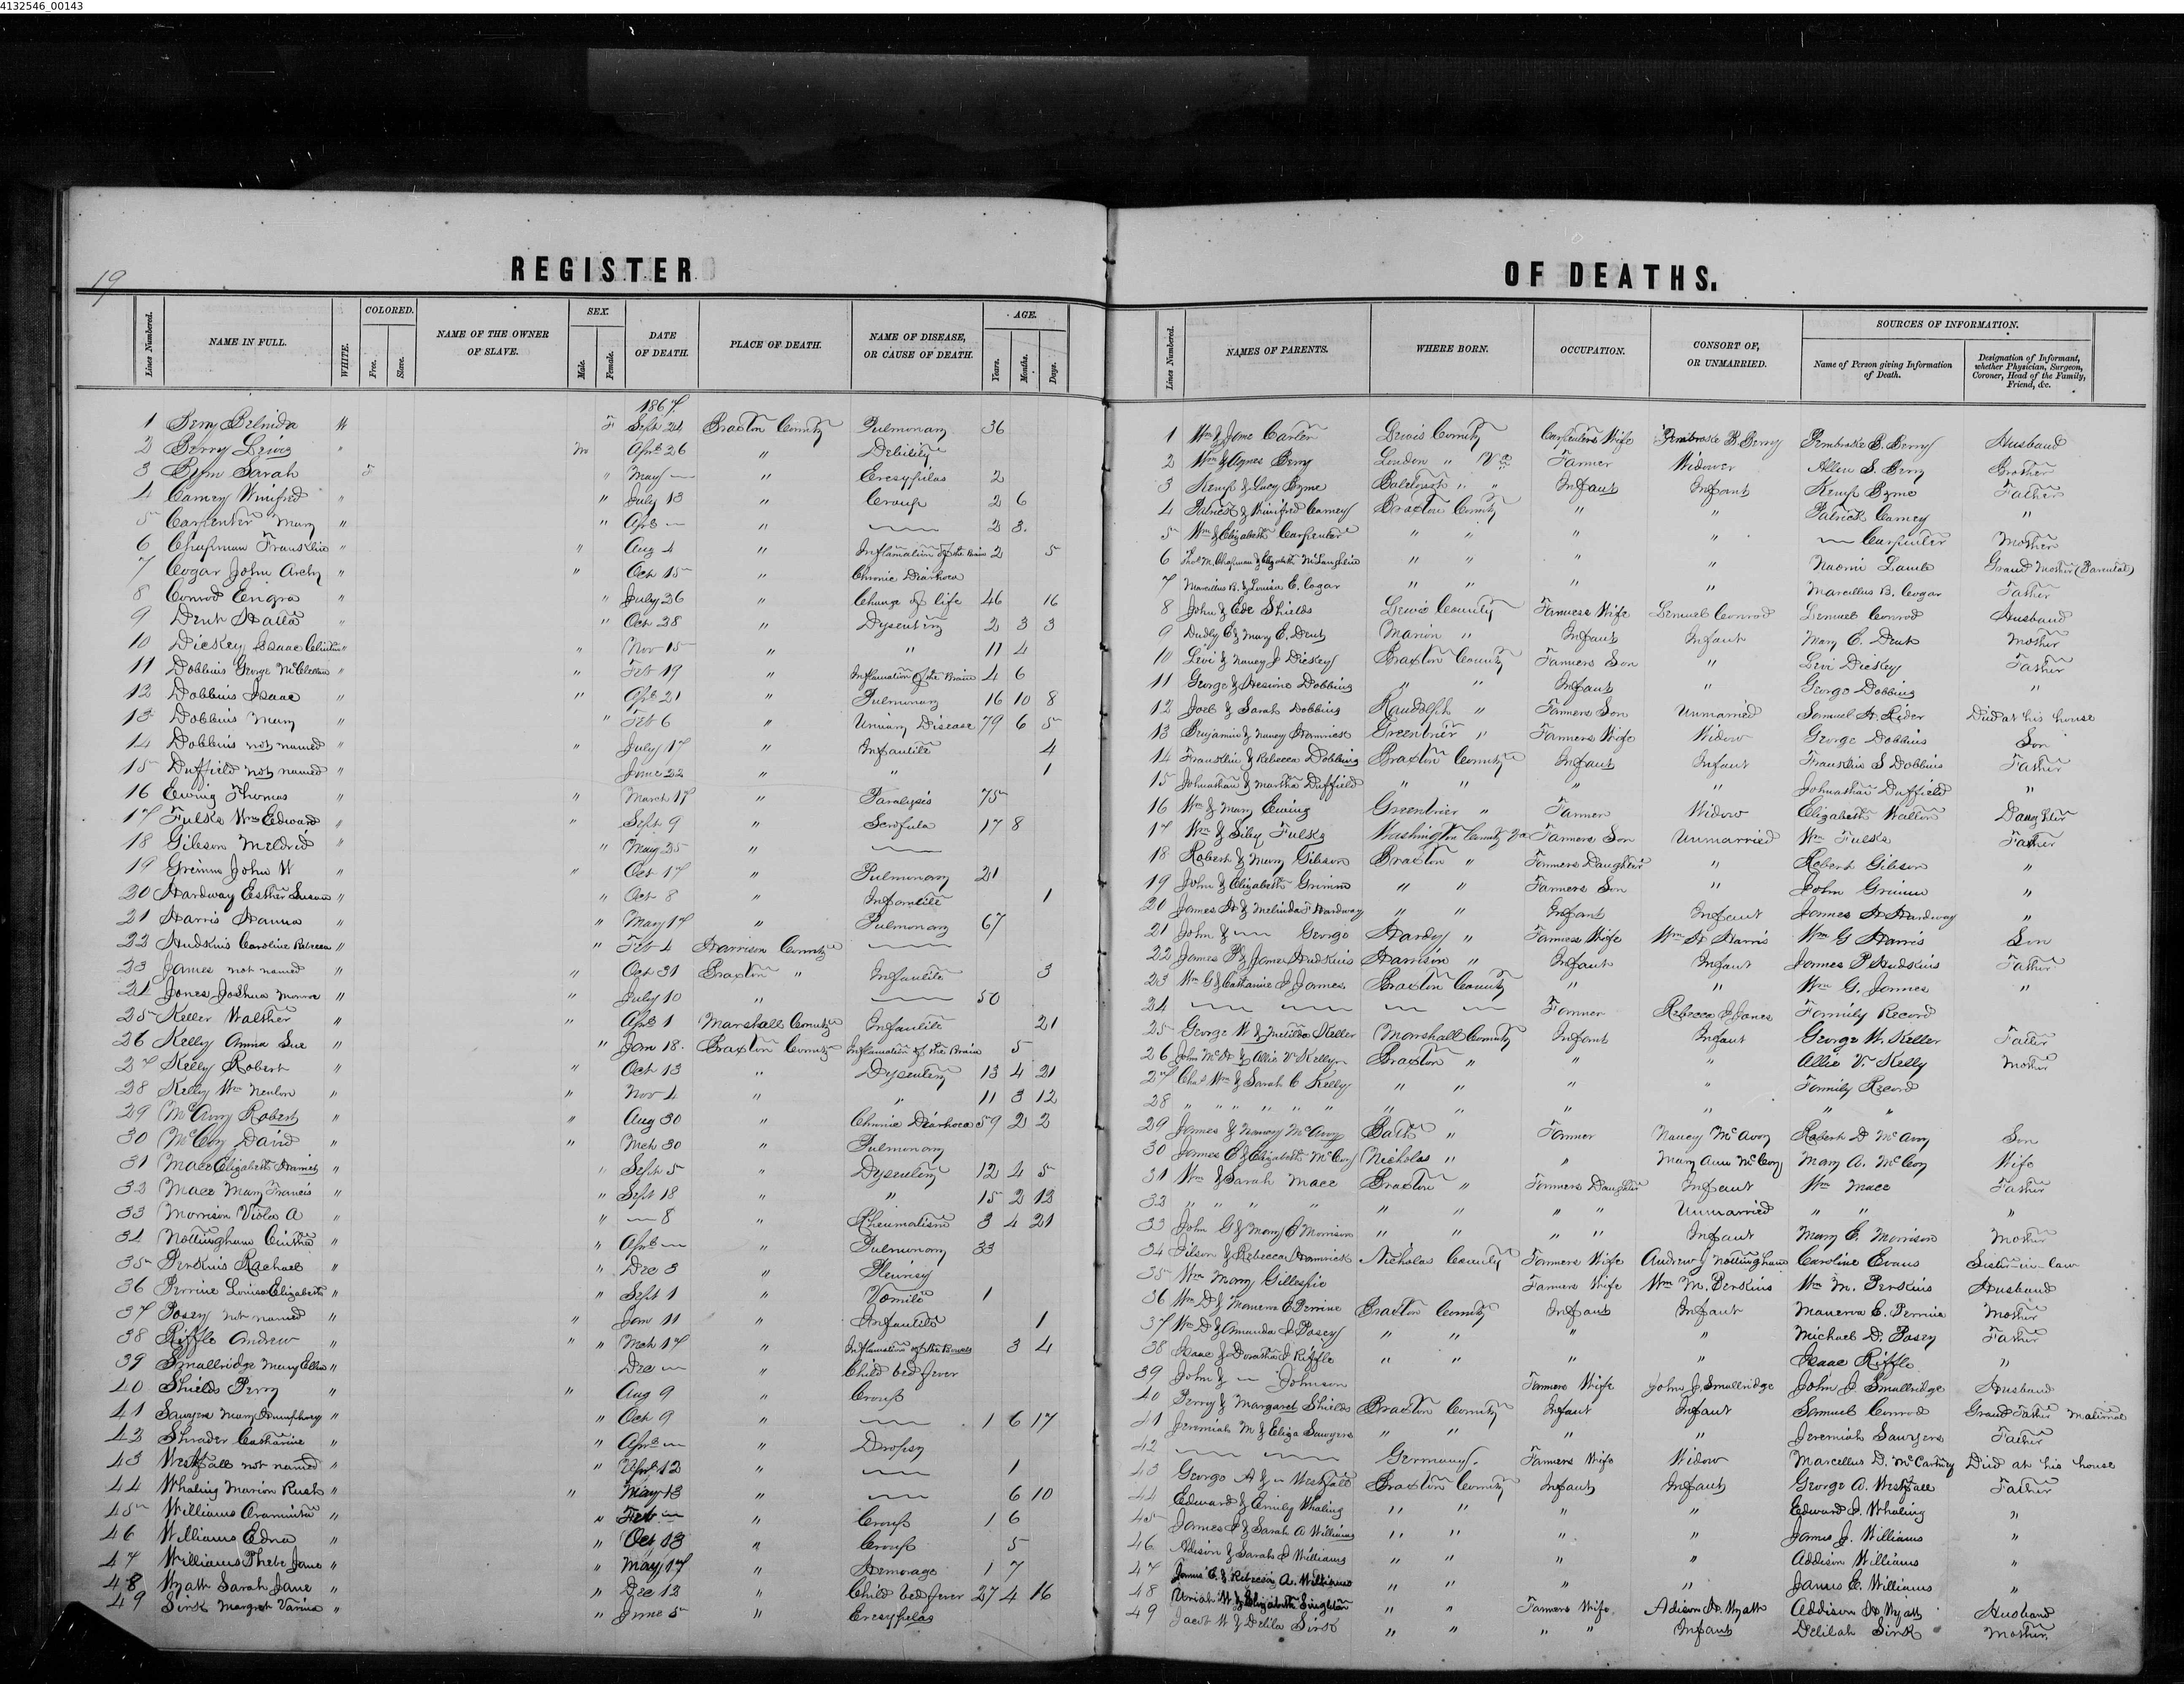 4132546_00143
19
REGISTER OF DEATHS.
Lines Numbered. NAME IN FULL. WHITE. COLORED. Free. Slave. NAME OF THE OWNER OF SLAVE. SEX. Male. Female. DATE OF DEATH. PLACE OF DEATH. NAME OF DISEASE, OR CAUSE OF DEATH. AGE. Years. Months. Days.
1867.
1 Berry Belinda W F Sept 24 Braxton County Pulmonary 36
2 Berry Lewis " m Apr 26 " Debility
3 Byrn Sarah F " May — " Eresyfulas 2
4 Carney Winifred " " July 13 " Croup 2 6
5 Carpenter Mary " " Apr — " — 2 3.
6 Chapman Franklin " " Aug 4 " Inflamation of the Brain 2 5
7 Cogar John Archy " " Oct 15 " Chronic Diarhoea
8 Conrod Enigra " " July 26 " Change of life 46 16
9 Dent Halla " " Oct 28 " Dysentery 2 3 3
10 Dickey Isaac Clinton " " Nov 15 " " 11 4
11 Dobbins George McClellan " " Feb 19 " Inflamation of the Brain 4 6
12 Dobbins Isaac " " Apr 21 " Pulmonary 16 10 8
13 Dobbins Mary " " Feb 6 " Urinary Disease 79 6 5
14 Dobbins not named " " July 17 " Infantile 4
15 Duffield not named " June 22 " " 1
16 Ewing Thomas " " March 17 " Paralysis 75
17 Fulks Wm Edward " " Sept 9 " Scrofula 17 8
18 Gibson Meldred " " May 25 " —
19 Grimm John W " " Oct 17 " Pulmonary 21
20 Hardway Esther Susan " " Oct 8 " Infantile 1
21 Harris Hanna " " May 17 " Pulmonary 67
22 Hudkins Caroline Rebecca " " Feb 4 Harrison County —
23 James not named " " Oct 31 Braxton " Infantile 3
24 Jones Joshua Monroe " " July 10 " — 50
25 Keller Walther " " Apr 1 Marshall County Infantile 21
26 Kelly Anna Sue " " Jan 18. Braxton County Inflamation of the Brain 5
27 Kelly Robert " " Oct 13 " Dysentery 13 4 21
28 Kelly Wm Newlon " " Nov 4 " " 11 3 12
29 McAvoy Robert " " Aug 30 " Chronic Diarhoea 59 2 2
30 McCoy David " " Mch 30 " Pulmonary
31 Mace Elizabeth Harriet " " Sept 5 " Dysentery 12 4 5
32 Mace Mary Francis " " Sept 18 " " 15 2 12
33 Morrison Viola A " " — 8 " Rheumatism 3 4 21
34 Nottingham Cintha " " Apr — " Pulmonary 33
35 Perkins Rachael " " Dec 3 " Pleurisy
36 Perrine Louisa Elizabeth " " Sept 1 " Vomite 1
37 Posey not named " " Jan 11 " Infantile 1
38 Riffle Andrew " " " Mch 17 " Inflamation of the Bowels 3 4
39 Smallridge Mary Ellen " Dec — " Child bed fever
40 Shields Perry " " Aug 9 " Croup
41 Sawyers Mary Humphrey " " Oct 9 " — 1 6 17
42 Shrader Catharine " " Apr — " Dropsy
43 Westfall not named " " Apr 12 " — 1
44 Whaling Marion Rush " " May 13 " — 6 10
45 Williams Araminta " " Feb — " Croup 1 6
46 Williams Edna " " Oct 13 " Croup 5
47 Williams Phebe Jane " " May 17 " Hemorage 1 7
48 Wyatt Sarah Jane " " Dec 12 " Child bed fever 27 4 16
49 Sirk Margret Varina " " June 5 " Eresyfelas
Lines Numbered. NAMES OF PARENTS. WHERE BORN. OCCUPATION. CONSORT OF, OR UNMARRIED. SOURCES OF INFORMATION. Name of Person giving Information of Death. Designation of Informant, whether Physician, Surgeon, Coroner, Head of the Family, Friend, &c.
1 Wm & Jane Carter Lewis County Carpenters Wife Pembroke B. Berry Pembroke B. Berry Husband
2 Wm & Agnes Berry Loudon " Va Farmer Widower Allen S. Berry Brother
3 Kemp & Lucy Byrne " " Infant Infant Kemp Byrne Father
4 Patrick & Winifred Carney Braxton County " " Patrick Carney "
5 Wm & Elizabeth Carpenter " " " " — Carpenter Mother
6 Thos M. Chapman & Elizabeth McLaughlin " " " " Naomi Lamb Grand Mother (Parental)
7 Marcellus B. & Louisa E. Cogar " " " " Marcellus B. Cogar Father
8 John & Ede Shields Lewis County Farmers Wife Lemuel Conrod Lemuel Conrod Husband
9 Dudly C & Mary E. Dent Marion " Infant Infant Mary E. Dent Mother
10 Levi & Nancy J Dickey Braxton County Farmers Son " Levi Dickey Father
11 George & Hesione Dobbins " " Infant " George Dobbins "
12 Joel & Sarah Dobbins Randolph " Farmers Son Unmarried Samuel H. Rider Died at his house
13 Benjamin & Nancy Hamrick Greenbrier " Farmers Wife Widow George Dobbins Son
14 Franklin & Rebecca Dobbins Braxton County Infant Infant Franklin S Dobbins Father
15 Johnathan & Martha Duffield " " " " Johnathan Duffield "
16 Wm & Mary Ewing Greenbrier " Farmer Widow Elizabeth Walton Daughter
17 Wm & Siby Fulks Washington County Va Farmers Son Unmarried Wm Fulks Father
18 Robert & Mary Gibson Braxton " Farmers Daughter " Robert Gibson "
19 John & Elizabeth Grimm " " Farmers Son " John Grimm "
20 James H & Melinda F Hardway " " Infant Infant James H Hardway "
21 John & — George Hardy " Farmers Wife Wm H Harris Wm G Harris Son
22 James P & Jane Hudkins Harrison " Infant Infant James P Hudkins Father
23 Wm G & Catharine J James Braxton County " " Wm G. James "
24 — — — — Farmer Rebecca J Jones Family Record
25 George W & Melissa Keller Marshall County Infant Infant George W. Keller Father
26 John McH & Allie V Kelly Braxton " " " Allie V. Kelly Mother
27 Chas Wm & Sarah C Kelly " " " " Family Record
28 " " " " " " " " " " " "
29 James & Nancy McAvoy Bath " Farmer Nancy McAvoy Robert D McAvoy Son
30 James E & Elizabeth McCoy Nicholas " " Mary Ann McCoy Mary A. McCoy Wife
31 Wm & Sarah Mace Braxton " Farmers Daughter Infant Wm Mace Father
32 " " " " " " " " Unmarried " " "
33 John G & Mary E Morrison " " " " Infant Mary E. Morrison Mother
34 Filson & Rebecca Hamrick Nicholas County Farmers Wife Andrew J Nottingham Caroline Evans Sister-in-law
35 Wm Mary Gillespie Farmers Wife Wm M. Perkins Wm M. Perkins Husband
36 Wm D & Manerva E Perrine Braxton County Infant Infant Manerva E. Perrine Mother
37 Wm D & Amanda J Posey " " " " Michael D. Posey Father
38 Isaac & Dorotha J Riffle " " " " Isaac Riffle "
39 John & — Johnson Farmers Wife John J. Smallridge John J. Smallridge Husband
40 Perry & Margaret Shields Braxton County Infant Infant Samuel Conrod Grand Father Maternal
41 Jeremiah M & Eliza Sawyers " " " " Jeremiah Sawyers Father
42 — — Germany. Farmers Wife Widow Marcellus D. McCartney Died at his house
43 George A & — Westfall Braxton County Infant Infant George A. Westfall Father
44 Edward & Emily Whaling " " " " Edward J. Whaling "
45 James J & Sarah A Williams " " " " James J. Williams "
46 Addison & Sarah J Williams " " " " Addison Williams "
47 James E. & Rebecca A. Williams " " " " James E. Williams "
48 Uriah W & Elizabeth Singleton " " Farmers Wife. Adison H. Wyatt Addison H Wyatt Husband
49 Jacob W & Delila Sirk " " " " Infant Delilah Sirk Mother.